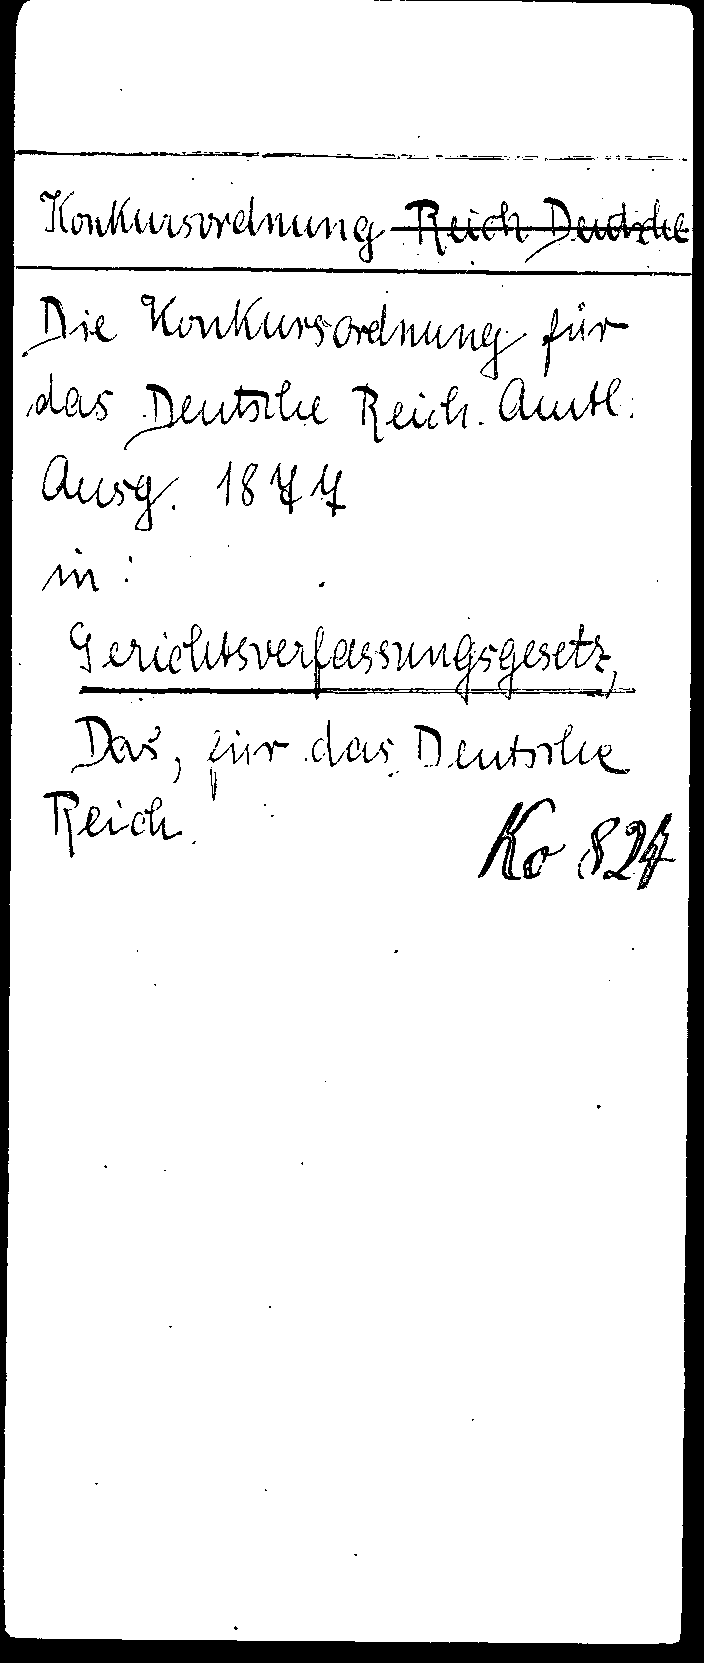 Konkursordnung Reich Deutsche
Die Konkursordnung für
das Deutsche Reich. Amtl.
Ausg. 1877
in:
Gerichtsverfassungsgesetz,
Das, für das Deutsche
Reich.
Ko 827